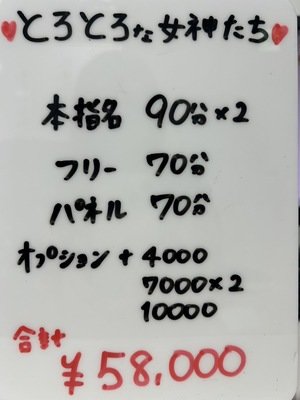 ♥とろとろな女神たち♥
本指名 90分×2
フリー 70分
パネル 70分
オプション + 4000
7000×2
10000
合計
¥58,000